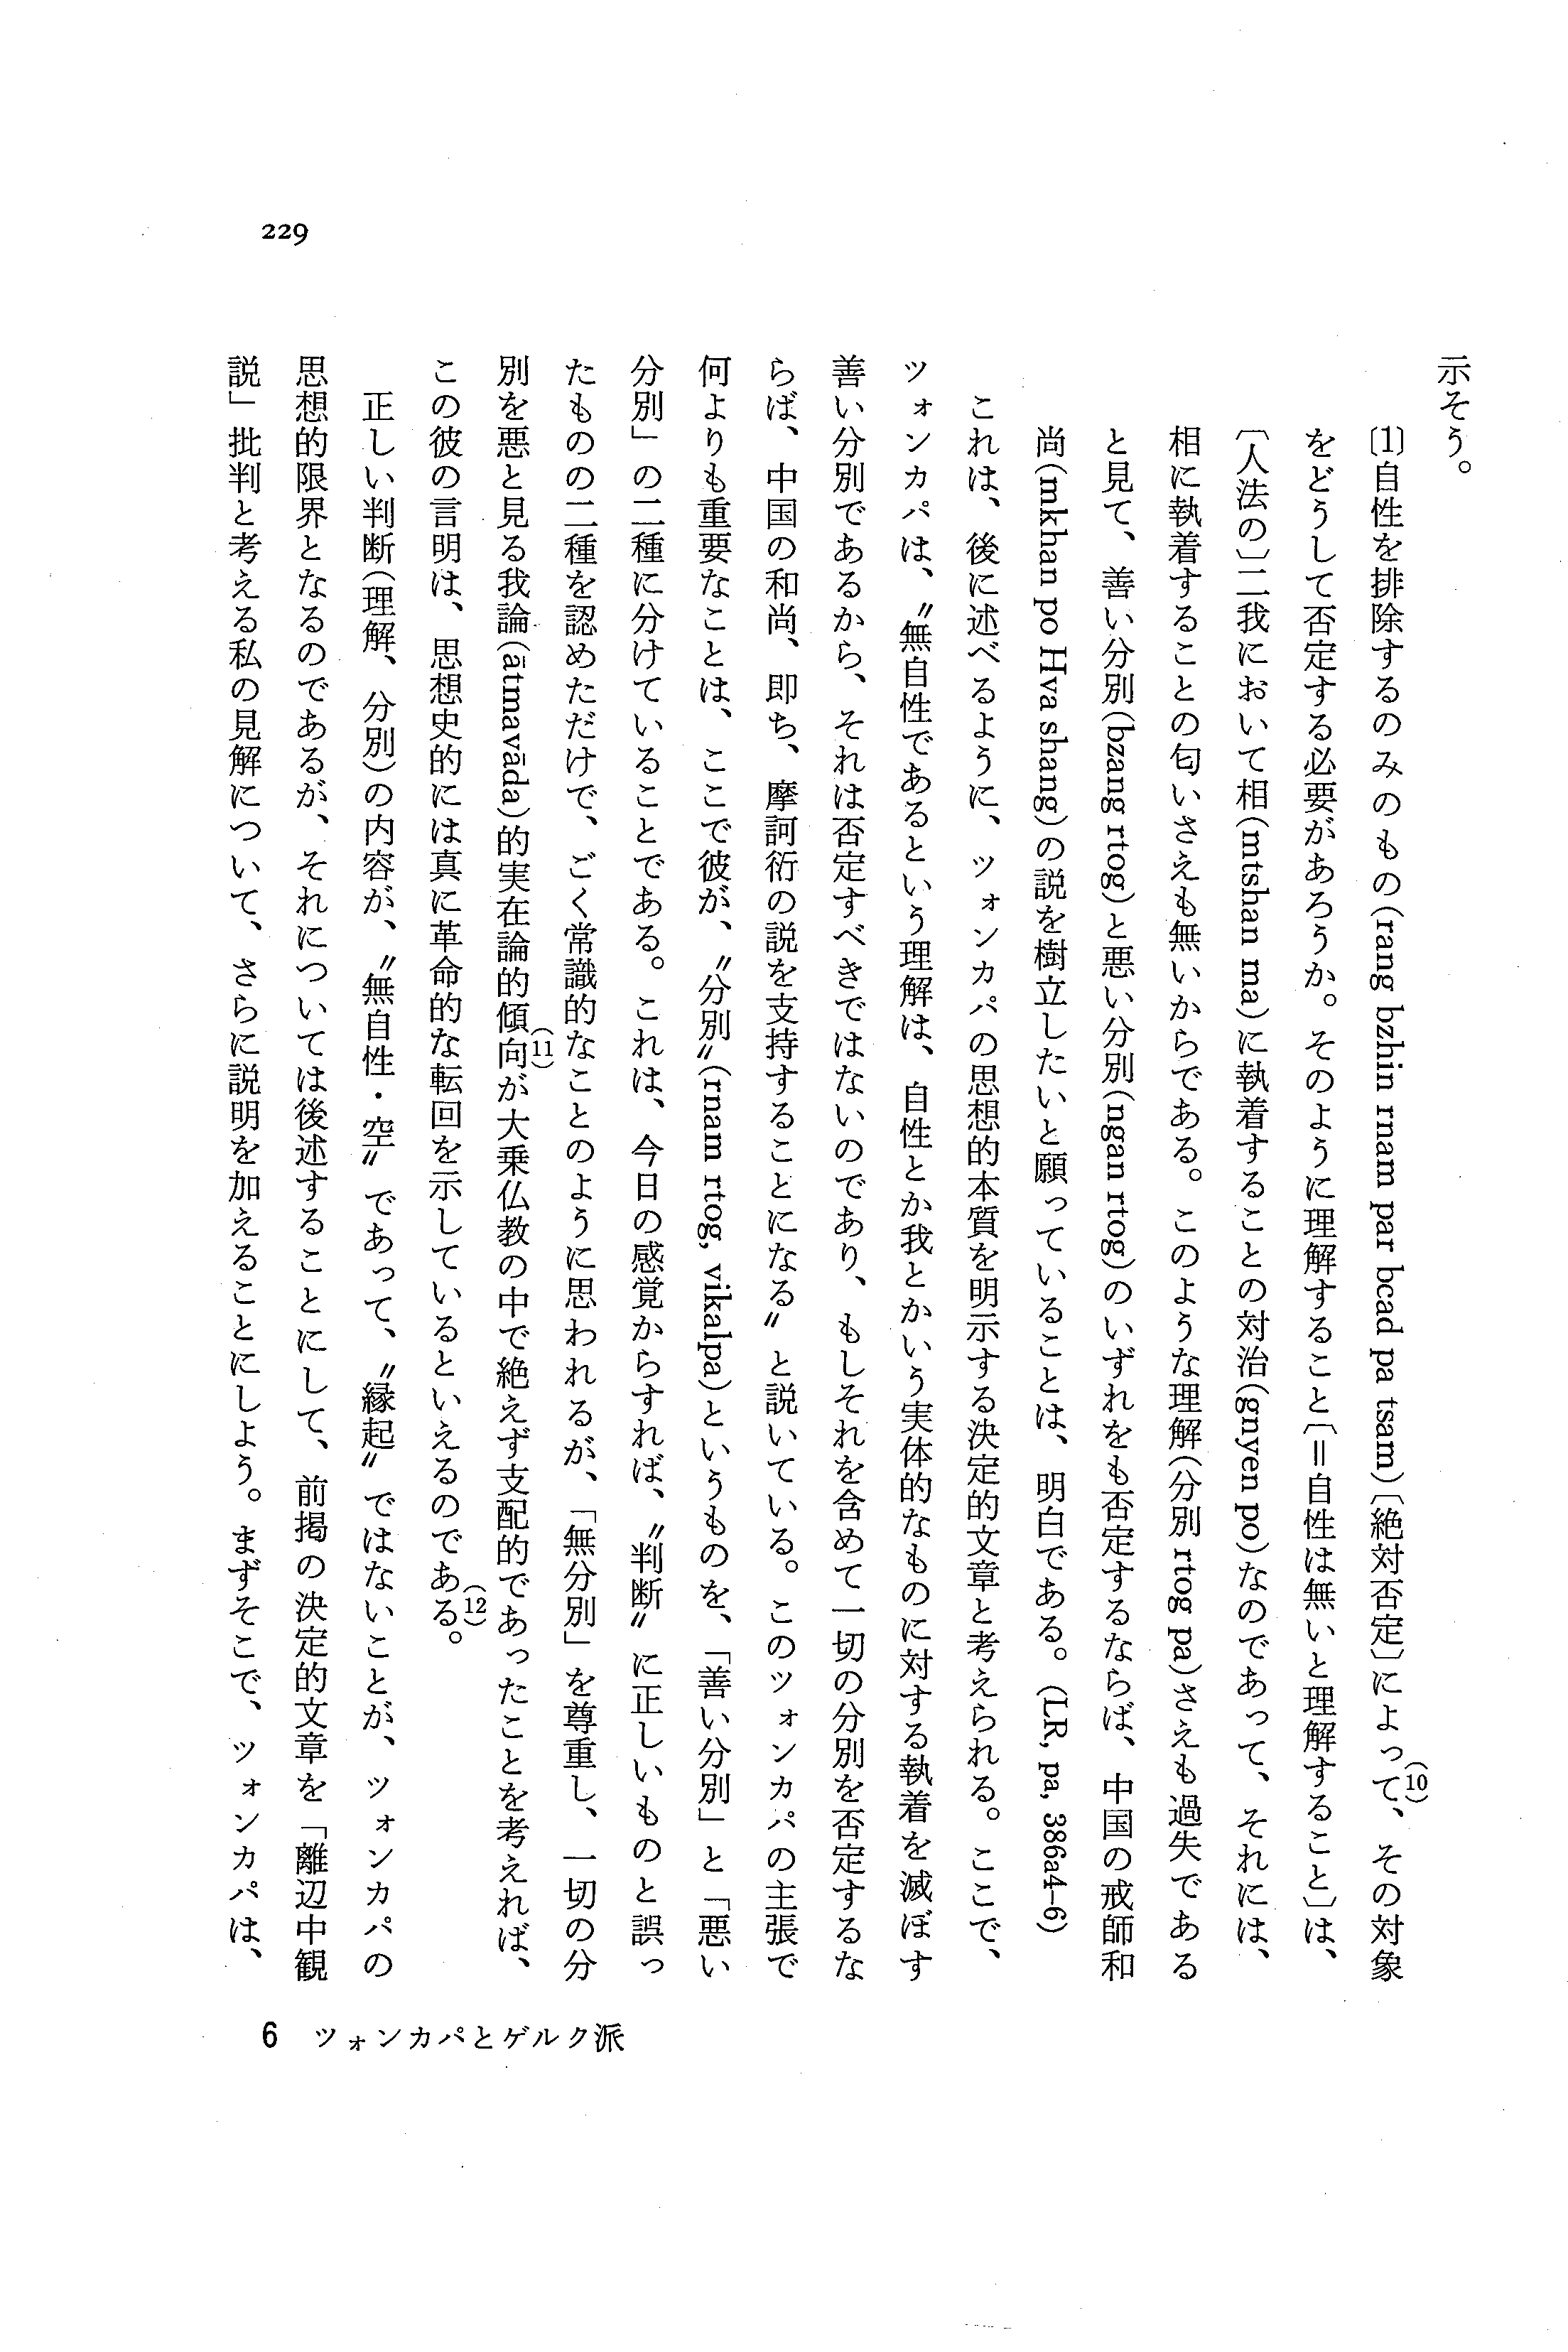 示そう。
〔1〕自性を排除するのみのもの(rang bzhin rnam par bcad pa tsam)〔絶対否定〕によって、(10)その対象
をどうして否定する必要があろうか。そのように理解すること〔＝自性は無いと理解すること〕は、
〔人法の〕二我において相(mtshan ma)に執着することの対治(gnyen po)なのであって、それには、
相に執着することの匂いさえも無いからである。このような理解(分別 rtog pa)さえも過失である
と見て、善い分別(bzang rtog)と悪い分別(ngan rtog)のいずれをも否定するならば、中国の戒師和
尚(mkhan po Hva shang)の説を樹立したいと願っていることは、明白である。(LR, pa, 386a4–6)
これは、後に述べるように、ツォンカパの思想的本質を明示する決定的文章と考えられる。ここで、
ツォンカパは、〝無自性であるという理解は、自性とか我とかいう実体的なものに対する執着を滅ぼす
善い分別であるから、それは否定すべきではないのであり、もしそれを含めて一切の分別を否定するな
らば、中国の和尚、即ち、摩訶衍の説を支持することになる〟と説いている。このツォンカパの主張で
何よりも重要なことは、ここで彼が、〝分別〟(rnam rtog, vikalpa)というものを、「善い分別」と「悪い
分別」の二種に分けていることである。これは、今日の感覚からすれば、〝判断〟に正しいものと誤っ
たものの二種を認めただけで、ごく常識的なことのように思われるが、「無分別」を尊重し、一切の分
別を悪と見る我論(ātmavāda)的実在論的傾向(11)が大乗仏教の中で絶えず支配的であったことを考えれば、
この彼の言明は、思想史的には真に革命的な転回を示しているといえるのである。(12)
正しい判断(理解、分別)の内容が、〝無自性・空〟であって、〝縁起〟ではないことが、ツォンカパの
思想的限界となるのであるが、それについては後述することにして、前掲の決定的文章を「離辺中観
説」批判と考える私の見解について、さらに説明を加えることにしよう。まずそこで、ツォンカパは、
229
6 ツォンカパとゲルク派